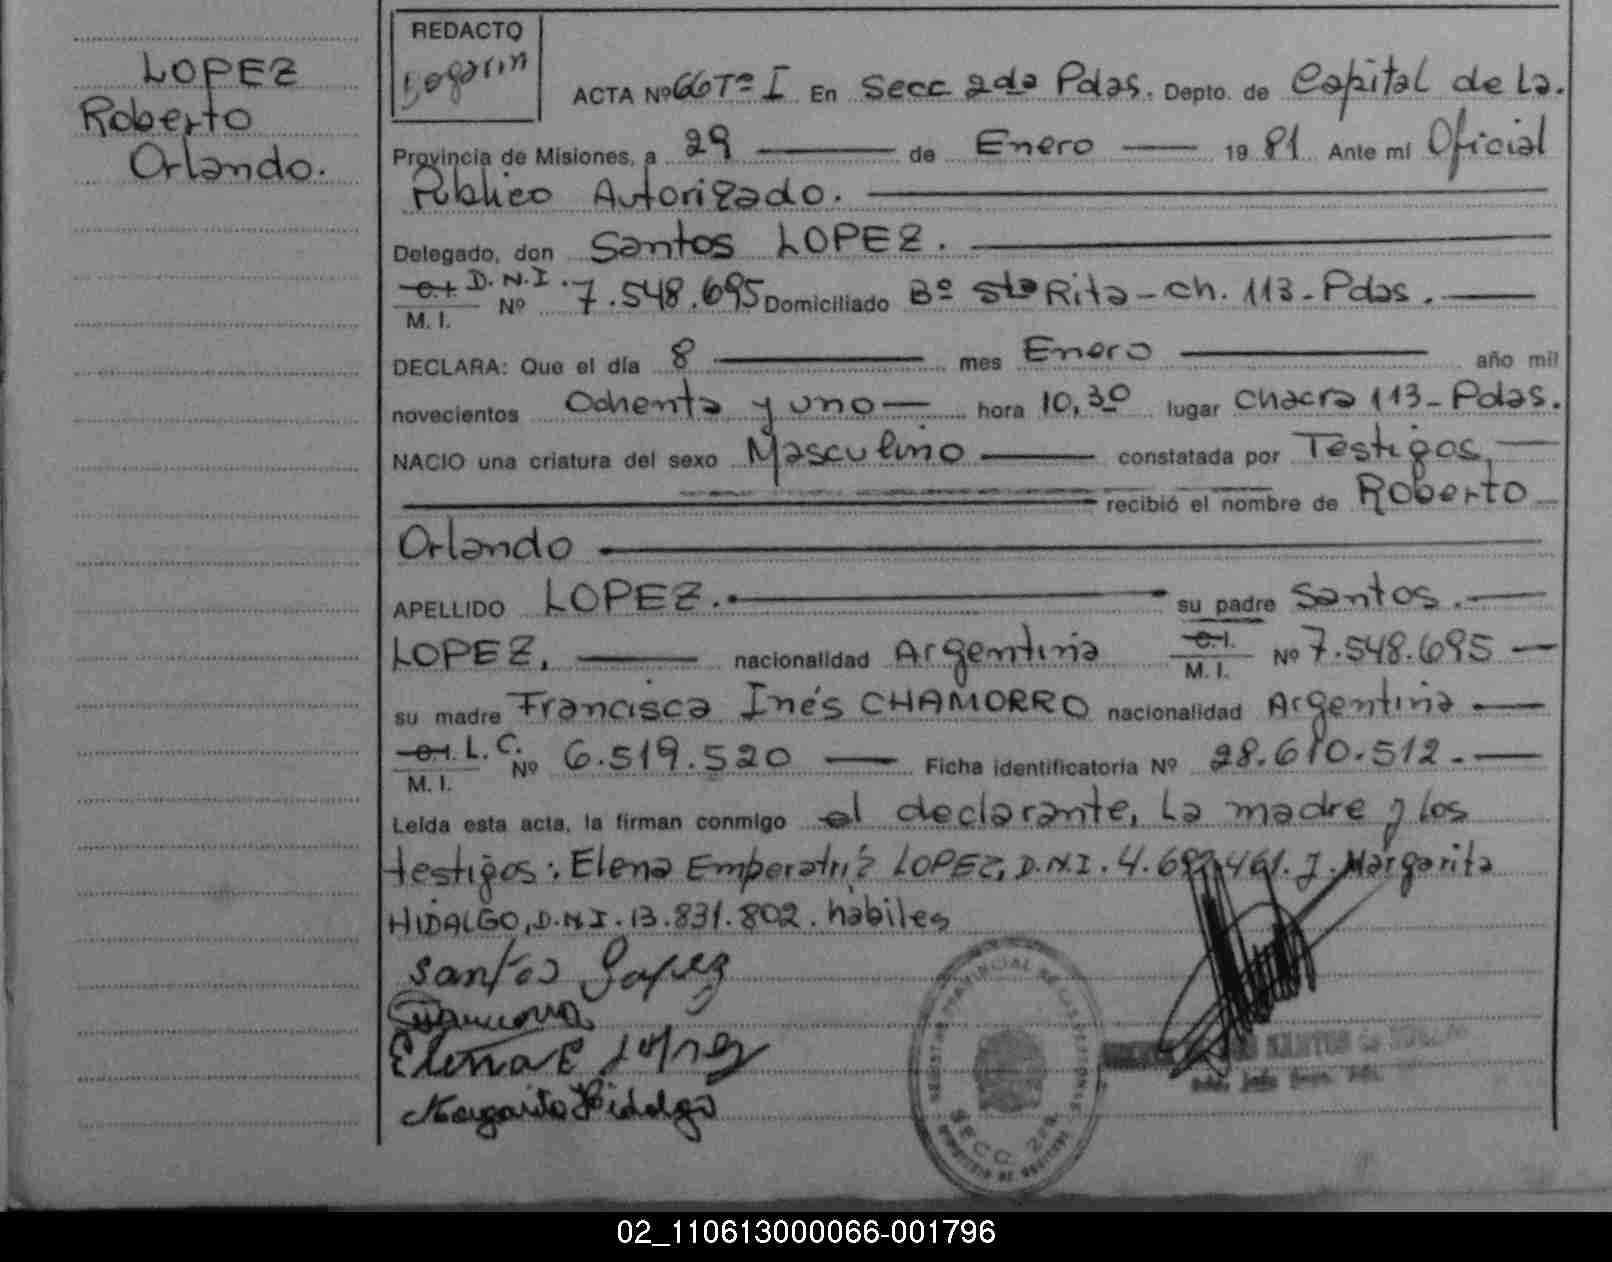 LOPEZ
Roberto
Orlando.
REDACTO
ACTA Nº 66 Tº I En Secc 2da Pdas. Depto. de Capital de La.
Provincia de Misiones, a 29 — de Enero — 19 81 Ante mi Oficial
Público Autorizado. —
Delegado, don Santos LOPEZ. —
C.I. D.N.I.
M. I. Nº 7.548.695 Domiciliado Bº Sta Rita - ch. 113 - Pdas. —
DECLARA: Que el día 8 — mes Enero — año mil
novecientos Ochenta y uno — hora 10,30 lugar Chacra 113 - Pdas.
NACIO una criatura del sexo Masculino — constatada por Testigos, —
— recibió el nombre de Roberto —
Orlando —
APELLIDO LOPEZ. — su padre Santos. —
LOPEZ, — nacionalidad Argentina C.I. M. I. Nº 7.548.695 —
su madre Francisca Inés CHAMORRO nacionalidad Argentina —
C.I. L.C.
M. I. Nº 6.519.520 — Ficha identificatoria Nº 28.610.512. —
Leída esta acta, la firman conmigo el declarante, La madre y los
testigos: Elena Emperatriz LOPEZ, D.N.I. 4. 461. y Margarita
HIDALGO, D.N.I. 13.831.802. hábiles
Santos Lopez
Elena E López
Margarita Hidalgo
REGISTRO PROVINCIAL DE LAS PERSONAS
SECC. 2da
02_110613000066-001796